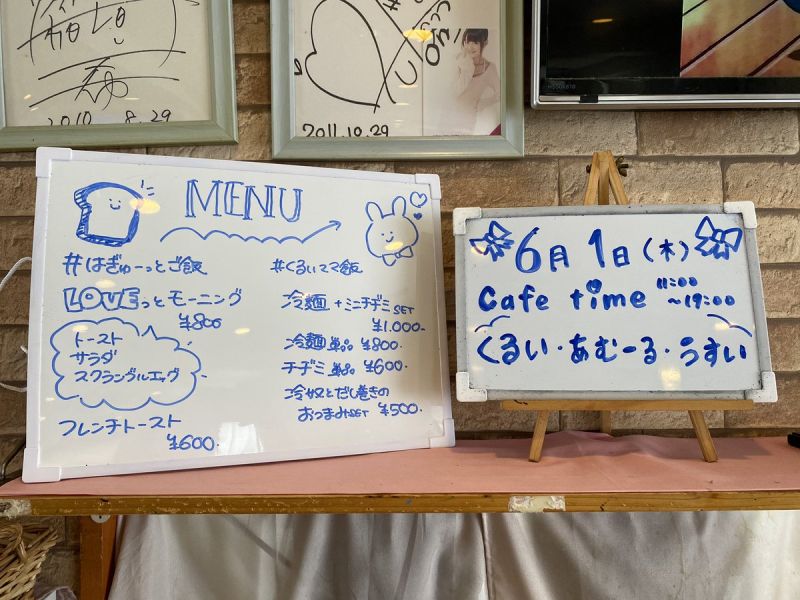 2010. 8. 29
2011.10.29
MENU
#はぎゅーっとご飯
LOVEっとモーニング
¥800
トースト
サラダ
スクランブルエッグ
フレンチトースト
¥600.
#くるいママ飯
冷麺+ミニチヂミSET
¥1.000-
冷麺 単品 ¥800.
チヂミ 単品 ¥600.
冷奴とだし巻きの
おつまみSET ¥500.
6月1日(木)
Cafe time 11:00
~19:00
くるい・あむーる・うすい